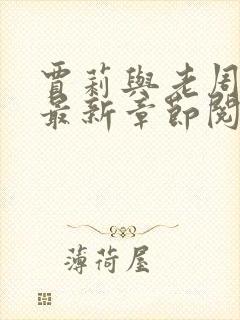 賈莉與老周
最新章節閱
薄荷屋